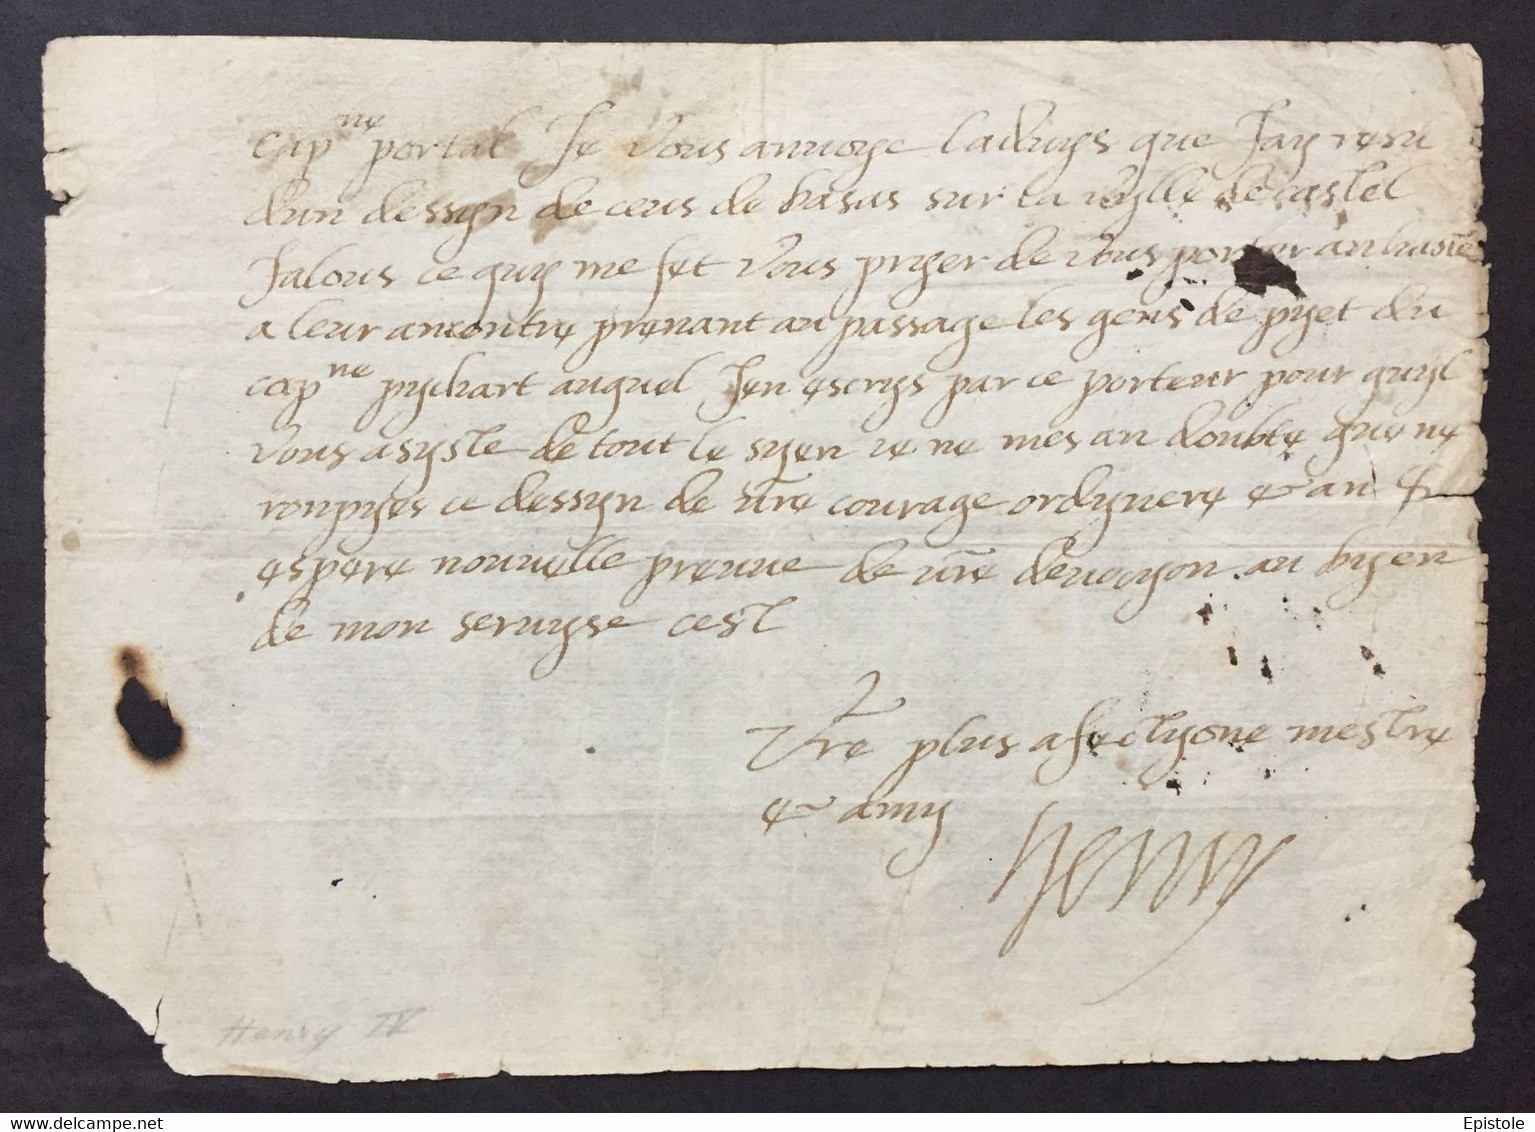 cap^ne portal Je vous anvoye ladvys que Jay resu
dun dessyn de ceus de basas sur la vylle de castel
Jalous ce quy me fet vous pryer de vous porter
a leur ancontre prenant au passage les gens de pyet du
cap^ne pychart auquel Jen escrys par ce porteur pour quyl
vous asyste de tout le syen je ne mes an doubte que ne
ronpyes ce dessyn de vre courage ordynere & an
espere nouvelle preuve de vre devocyon au byen
de mon servyse cest
Vre plus afectyone mestre
& amy
henry
Henry IV
Epistole